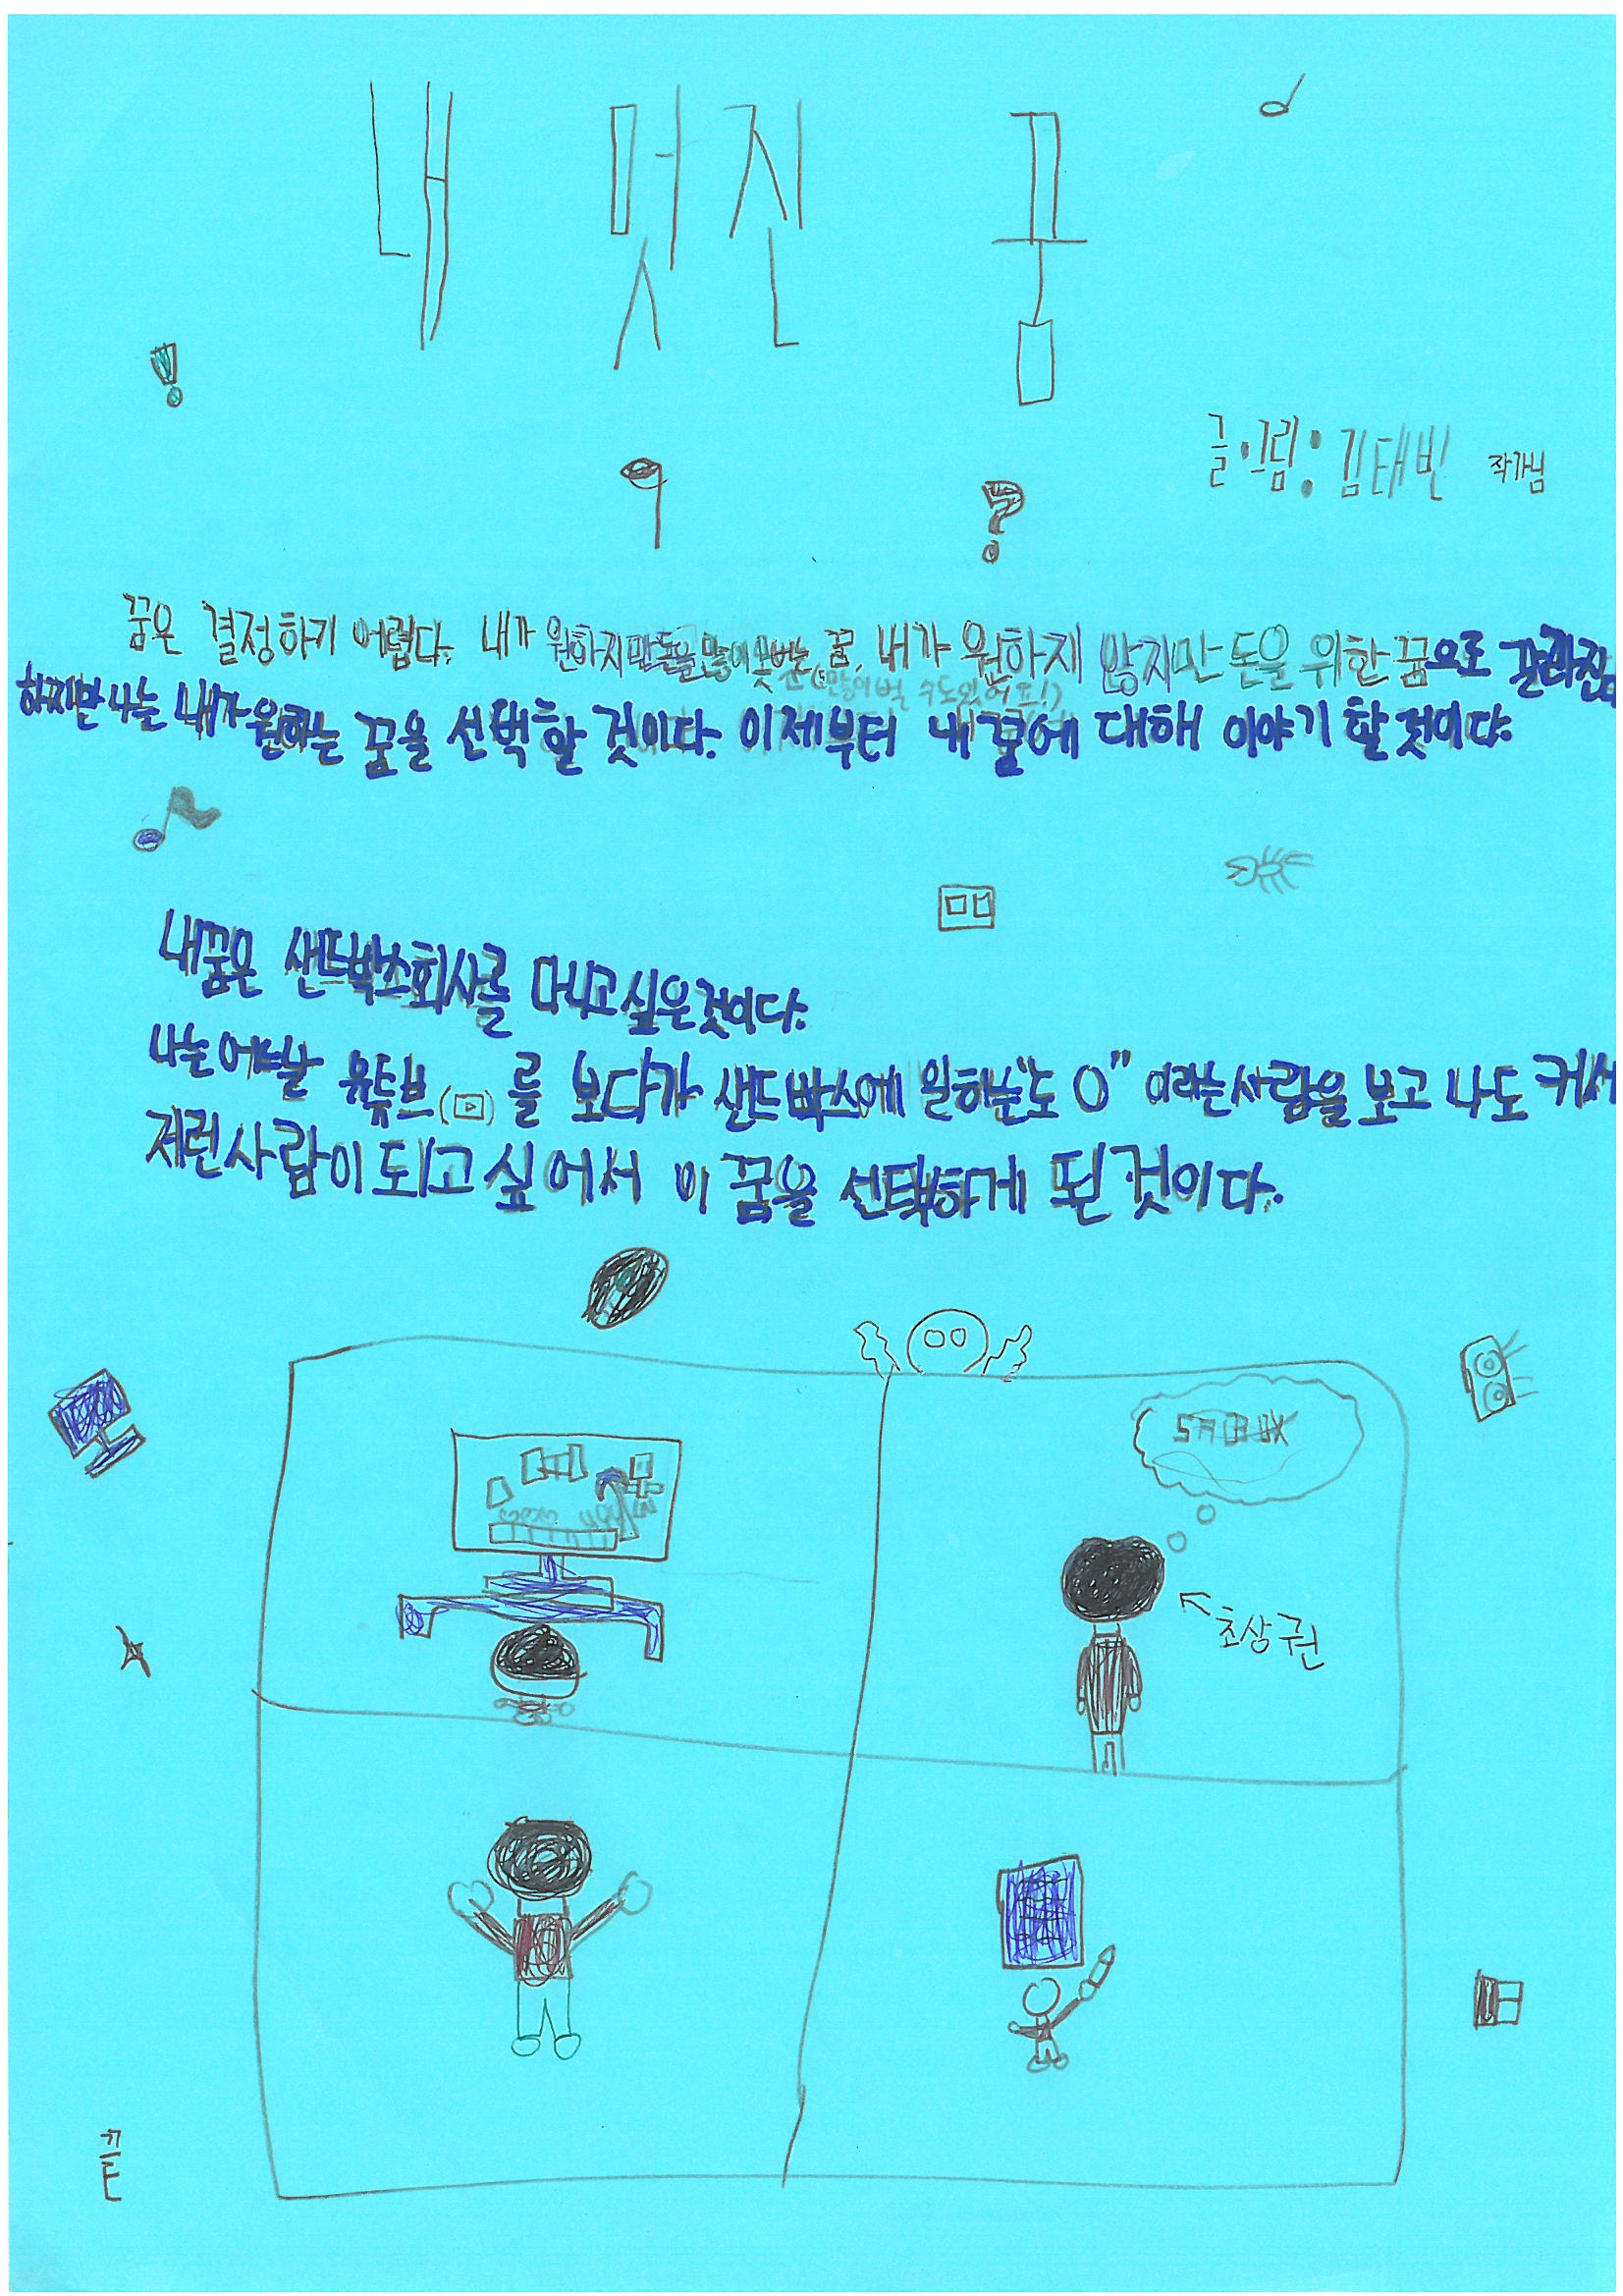 내 멋진 꿈
글·그림: 김태빈 작가님
꿈은 결정하기 어렵다. 내가 원하지만 돈을 많이 못버는 꿈, 내가 원하지 않지만 돈을 위한 꿈으로 갈라진다
(많이 벌 수도 있어요!)
하지만 나는 내가 원하는 꿈을 선택할 것이다. 이제부터 내 꿈에 대해 이야기 할 것이다.
내꿈은 샌드박스회사를 다니고 싶은것이다.
나는 어느날 유튜브(▶)를 보다가 샌드박스에 일하는 "도 O" 이라는 사람을 보고 나도 커서
저런 사람이 되고 싶어서 이 꿈을 선택하게 된 것이다.
초상권
끝